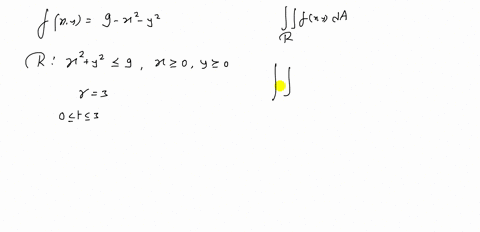 f(x,y) = 9 - x² - y²
∬ f(x,y) dA
R
R : x² + y² ≤ 9 , x ≥ 0, y ≥ 0
r = 3
∫∫
0 ≤ r ≤ 3